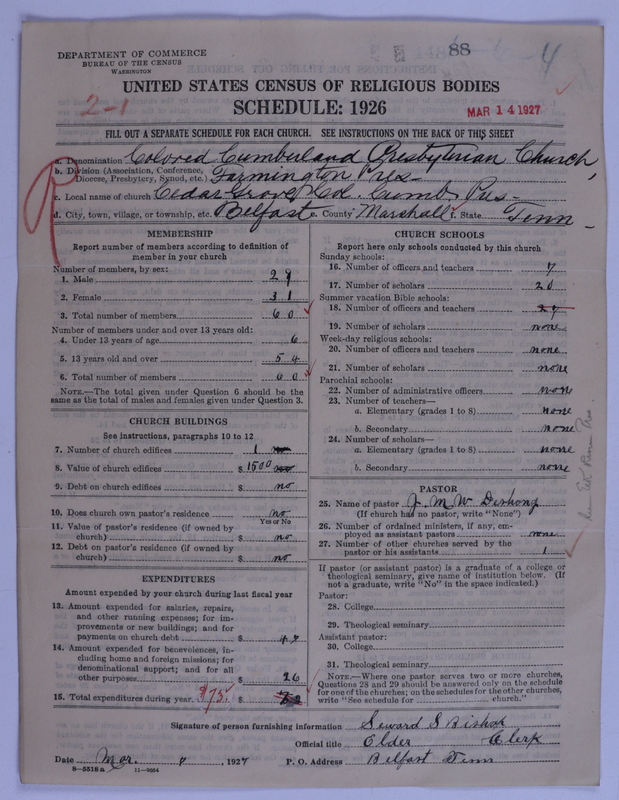 88
4
DEPARTMENT OF COMMERCE
BUREAU OF THE CENSUS
WASHINGTON
UNITED STATES CENSUS OF RELIGIOUS BODIES
SCHEDULE: 1926
MAR 14 1927
2-1
FILL OUT A SEPARATE SCHEDULE FOR EACH CHURCH. SEE INSTRUCTIONS ON THE BACK OF THIS SHEET
R
a. Denomination Colored Cumberland Presbyterian Church,
b. Division (Association, Conference, Diocese, Presbytery, Synod, etc.) Farmington Pres-
c. Local name of church Cedar Grove Col. Cumb Pres-
d. City, town, village, or township, etc. Belfast e. County Marshall f. State Tenn-
MEMBERSHIP
Report number of members according to definition of
member in your church
Number of members, by sex:
1. Male 29
2. Female 31
3. Total number of members 60
Number of members under and over 13 years old:
4. Under 13 years of age 6
5. 13 years old and over 54
6. Total number of members 60
NOTE.—The total given under Question 6 should be
same as the total of males and females given under Question 3.
CHURCH BUILDINGS
See instructions, paragraphs 10 to 12
7. Number of church edifices 1
8. Value of church edifices $ 1500
9. Debt on church edifices $ no
10. Does church own pastor's residence no
Yes or No
11. Value of pastor's residence (if owned by
church) $ no
12. Debt on pastor's residence (if owned by
church) $ no
EXPENDITURES
Amount expended by your church during last fiscal year
13. Amount expended for salaries, repairs,
and other running expenses; for im-
provements or new buildings; and for
payments on church debt $
14. Amount expended for benevolences, in-
cluding home and foreign missions; for
denominational support; and for all
other purposes $ 26
15. Total expenditures during year. $75.
CHURCH SCHOOLS
Report here only schools conducted by this church
Sunday schools:
16. Number of officers and teachers 7
17. Number of scholars 20
Summer vacation Bible schools:
18. Number of officers and teachers 27
19. Number of scholars none
Week-day religious schools:
20. Number of officers and teachers none
21. Number of scholars none
Parochial schools:
22. Number of administrative officers none
23. Number of teachers—
a. Elementary (grades 1 to 8) none
b. Secondary none
24. Number of scholars—
a. Elementary (grades 1 to 8) none
b. Secondary none
PASTOR
25. Name of pastor J. M. W. Deshong
(If church has no pastor, write "None")
26. Number of ordained ministers, if any, em-
ployed as assistant pastors none
27. Number of other churches served by the
pastor or his assistants 1
If pastor (or assistant pastor) is a graduate of a college or
theological seminary, give name of institution below. (If
not a graduate, write "No" in the space indicated.)
Pastor:
28. College
29. Theological seminary
Assistant pastor:
30. College
31. Theological seminary
NOTE.—Where one pastor serves two or more churches,
Questions 28 and 29 should be answered only on the schedule
for one of the churches; on the schedules for the other churches,
write "See schedule for church."
Signature of person furnishing information Seward S Bishop
Official title Elder Clerk
Date Mar. 8, 1927 P. O. Address Belfast Tenn
8-5518a 11-9064